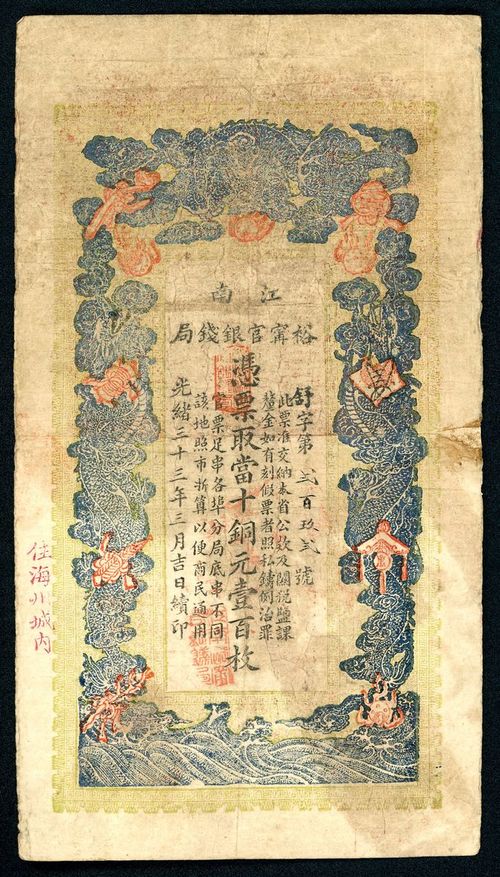 江南
裕甯官銀錢局
舒字第 弍百玖弍 號
此票准交納本省公款及關稅鹽課
釐金如有刻假票者照私鑄例治罪
憑票取當十銅元壹百枚
官票足串各埠分局底串不同
該地照市折算以便商民通用
光緒三十三年三月吉日續印
住海川城內